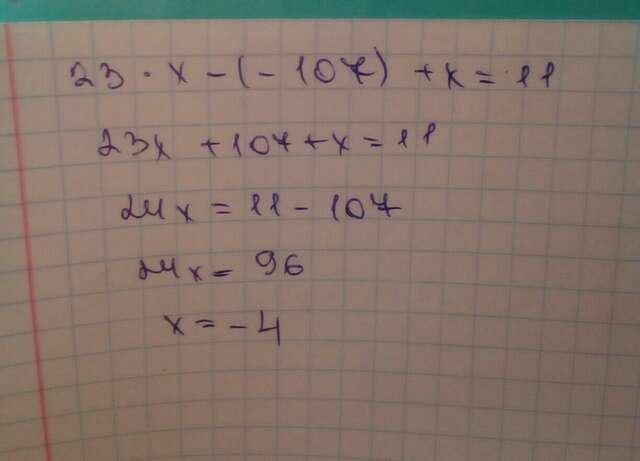 23 · x - (- 107) + x = 11
23x + 107 + x = 11
24x = 11 - 107
24x = 96
x = - 4